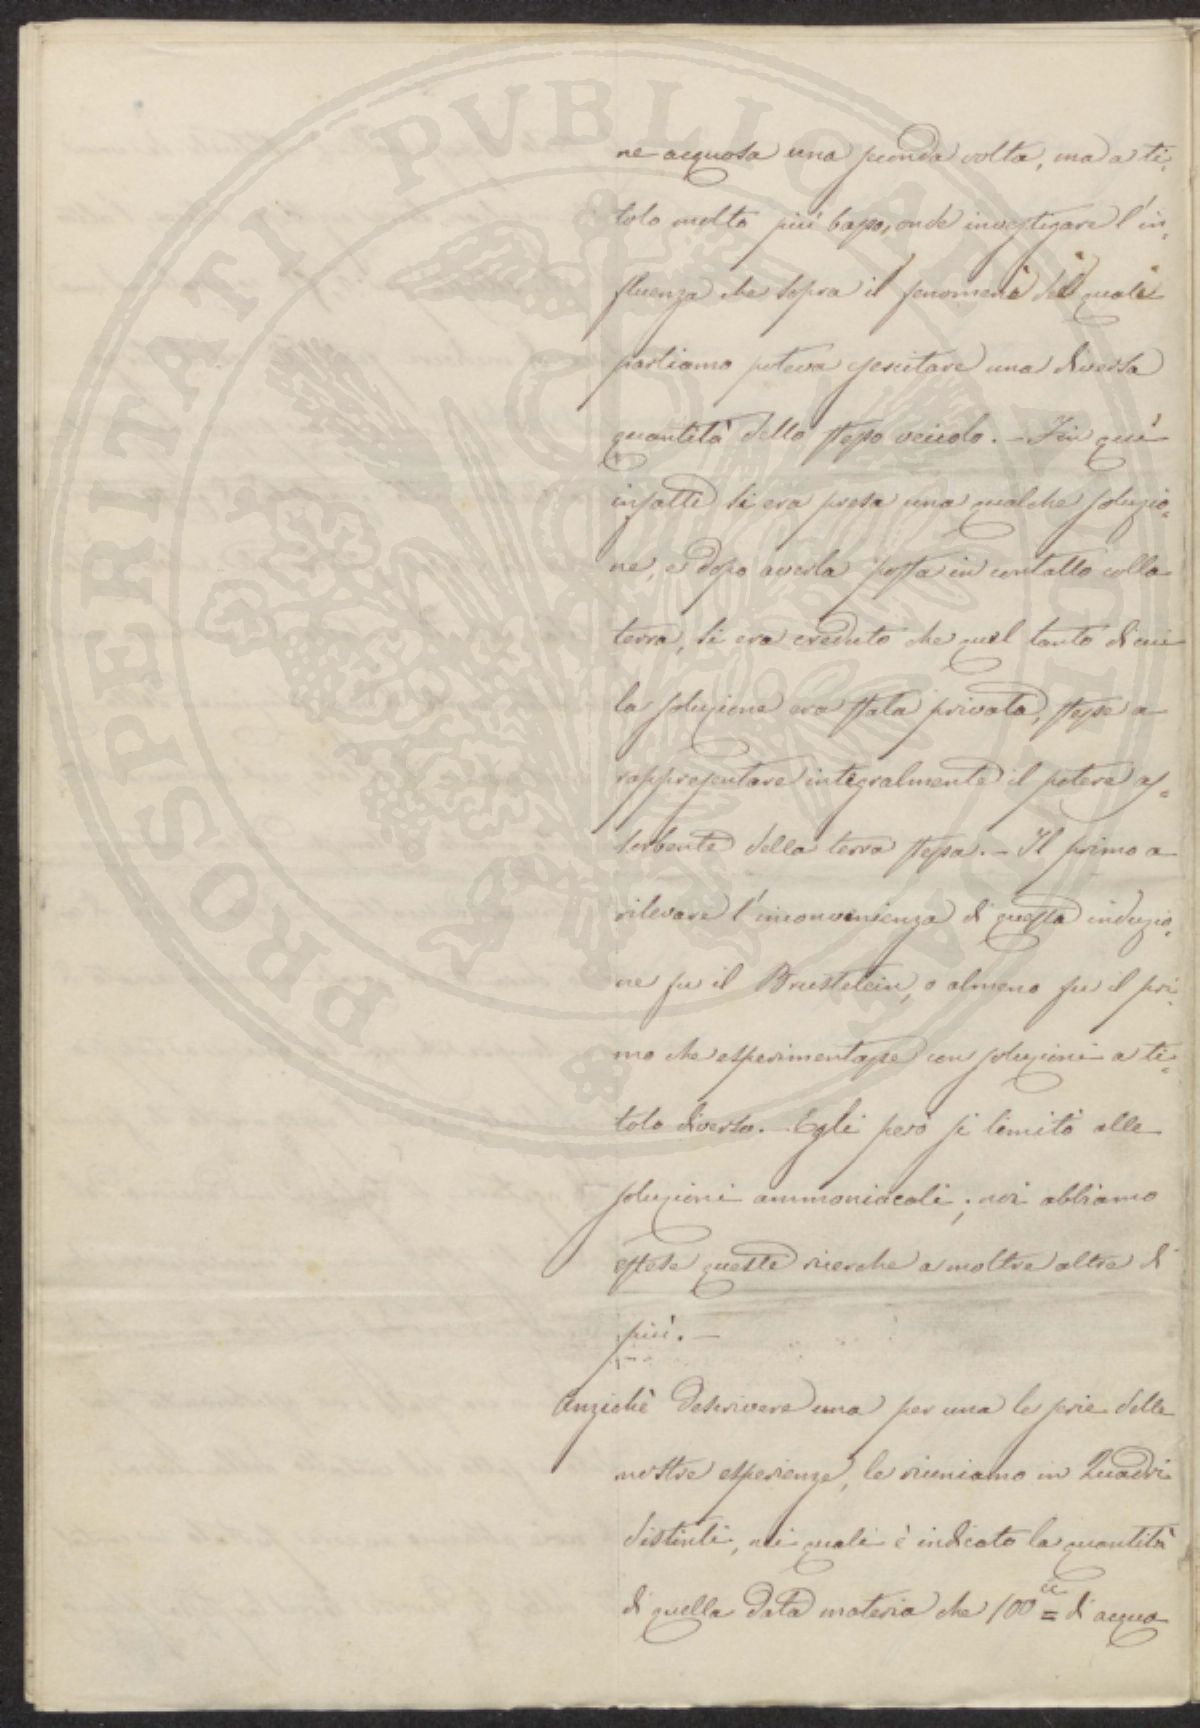 PROSPERITATI PVBLICAE AVGENDAE
ne acquosa una seconda volta, ma a ti=
tolo molto più basso, onde investigare l'in=
fluenza che sopra il fenomeno del quale
parliamo poteva esercitare una diversa
quantità dello stesso veicolo. – Fin quì
infatti si era presa una qualche soluzio=
ne, e dopo averla posta in contatto colla
terra, si era creduto che quel tanto di cui
la soluzione era stata privata, stesse a
rappresentare integralmente il potere as=
sorbente della terra stessa. – Il primo a
rilevare l'inconvenienza di questa induzio=
ne fu il Brustelein, o almeno fu il pri=
mo che esperimentasse con soluzioni a ti=
tolo diverso. – Egli però si limitò alle
soluzioni ammoniacali; noi abbiamo
estese queste ricerche a moltre altre di
più. –
Anzichè descrivere una per una le serie delle
nostre esperienze, le riuniamo in Quadri
distinti, nei quali è indicato la quantità
di quella data materia che 100 cc = di acqua